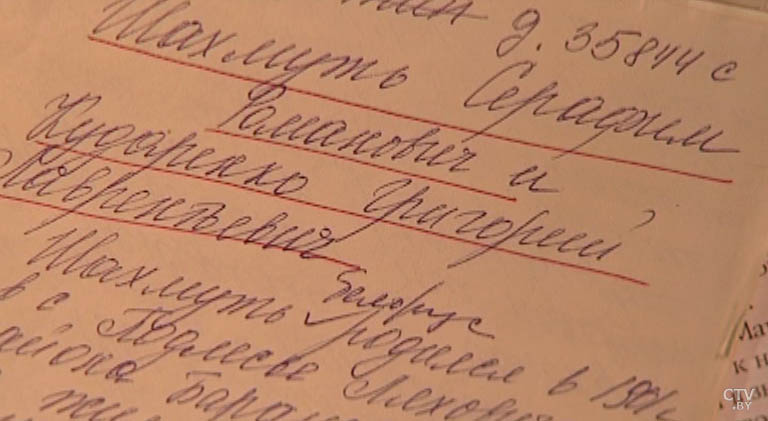 д. 35844 с
Шахмуть Серафим
Романович и
Кударенко Григорий
Лаврентьевич
Шахмуть белорус родился в 1901г
в с Подлесье Ляхович
района Баран
CTV
.BY